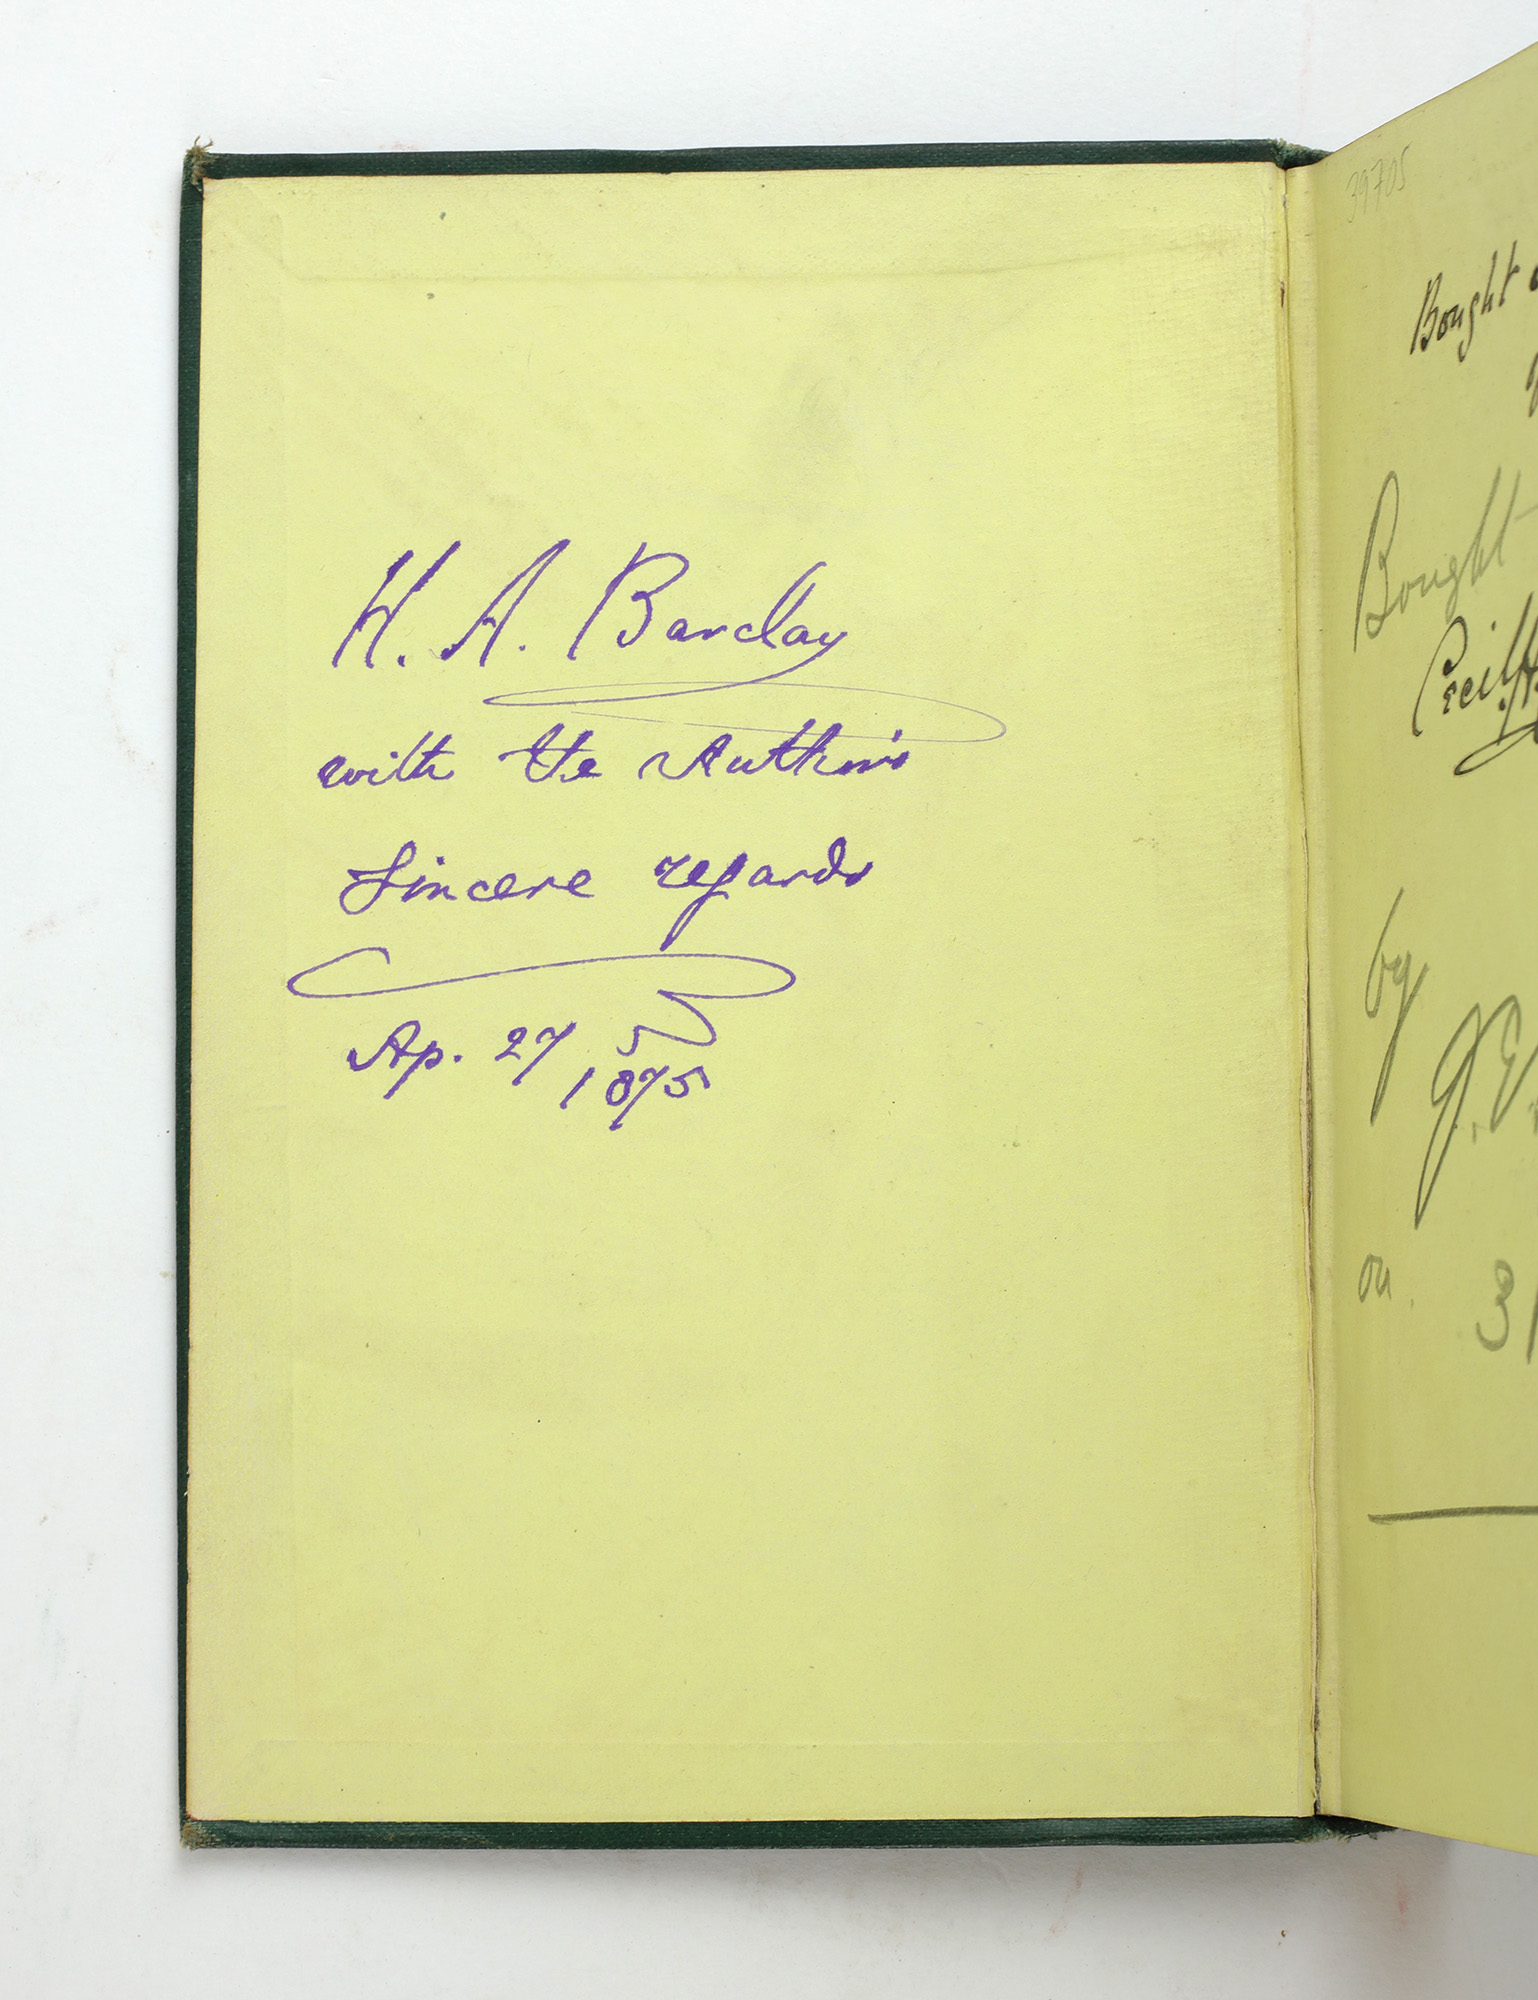 H. A. Barclay
with the Author's
Sincere regards
Ap. 27
1875
39705
Bought
Bought
Cecil
by
J. E.
on
3